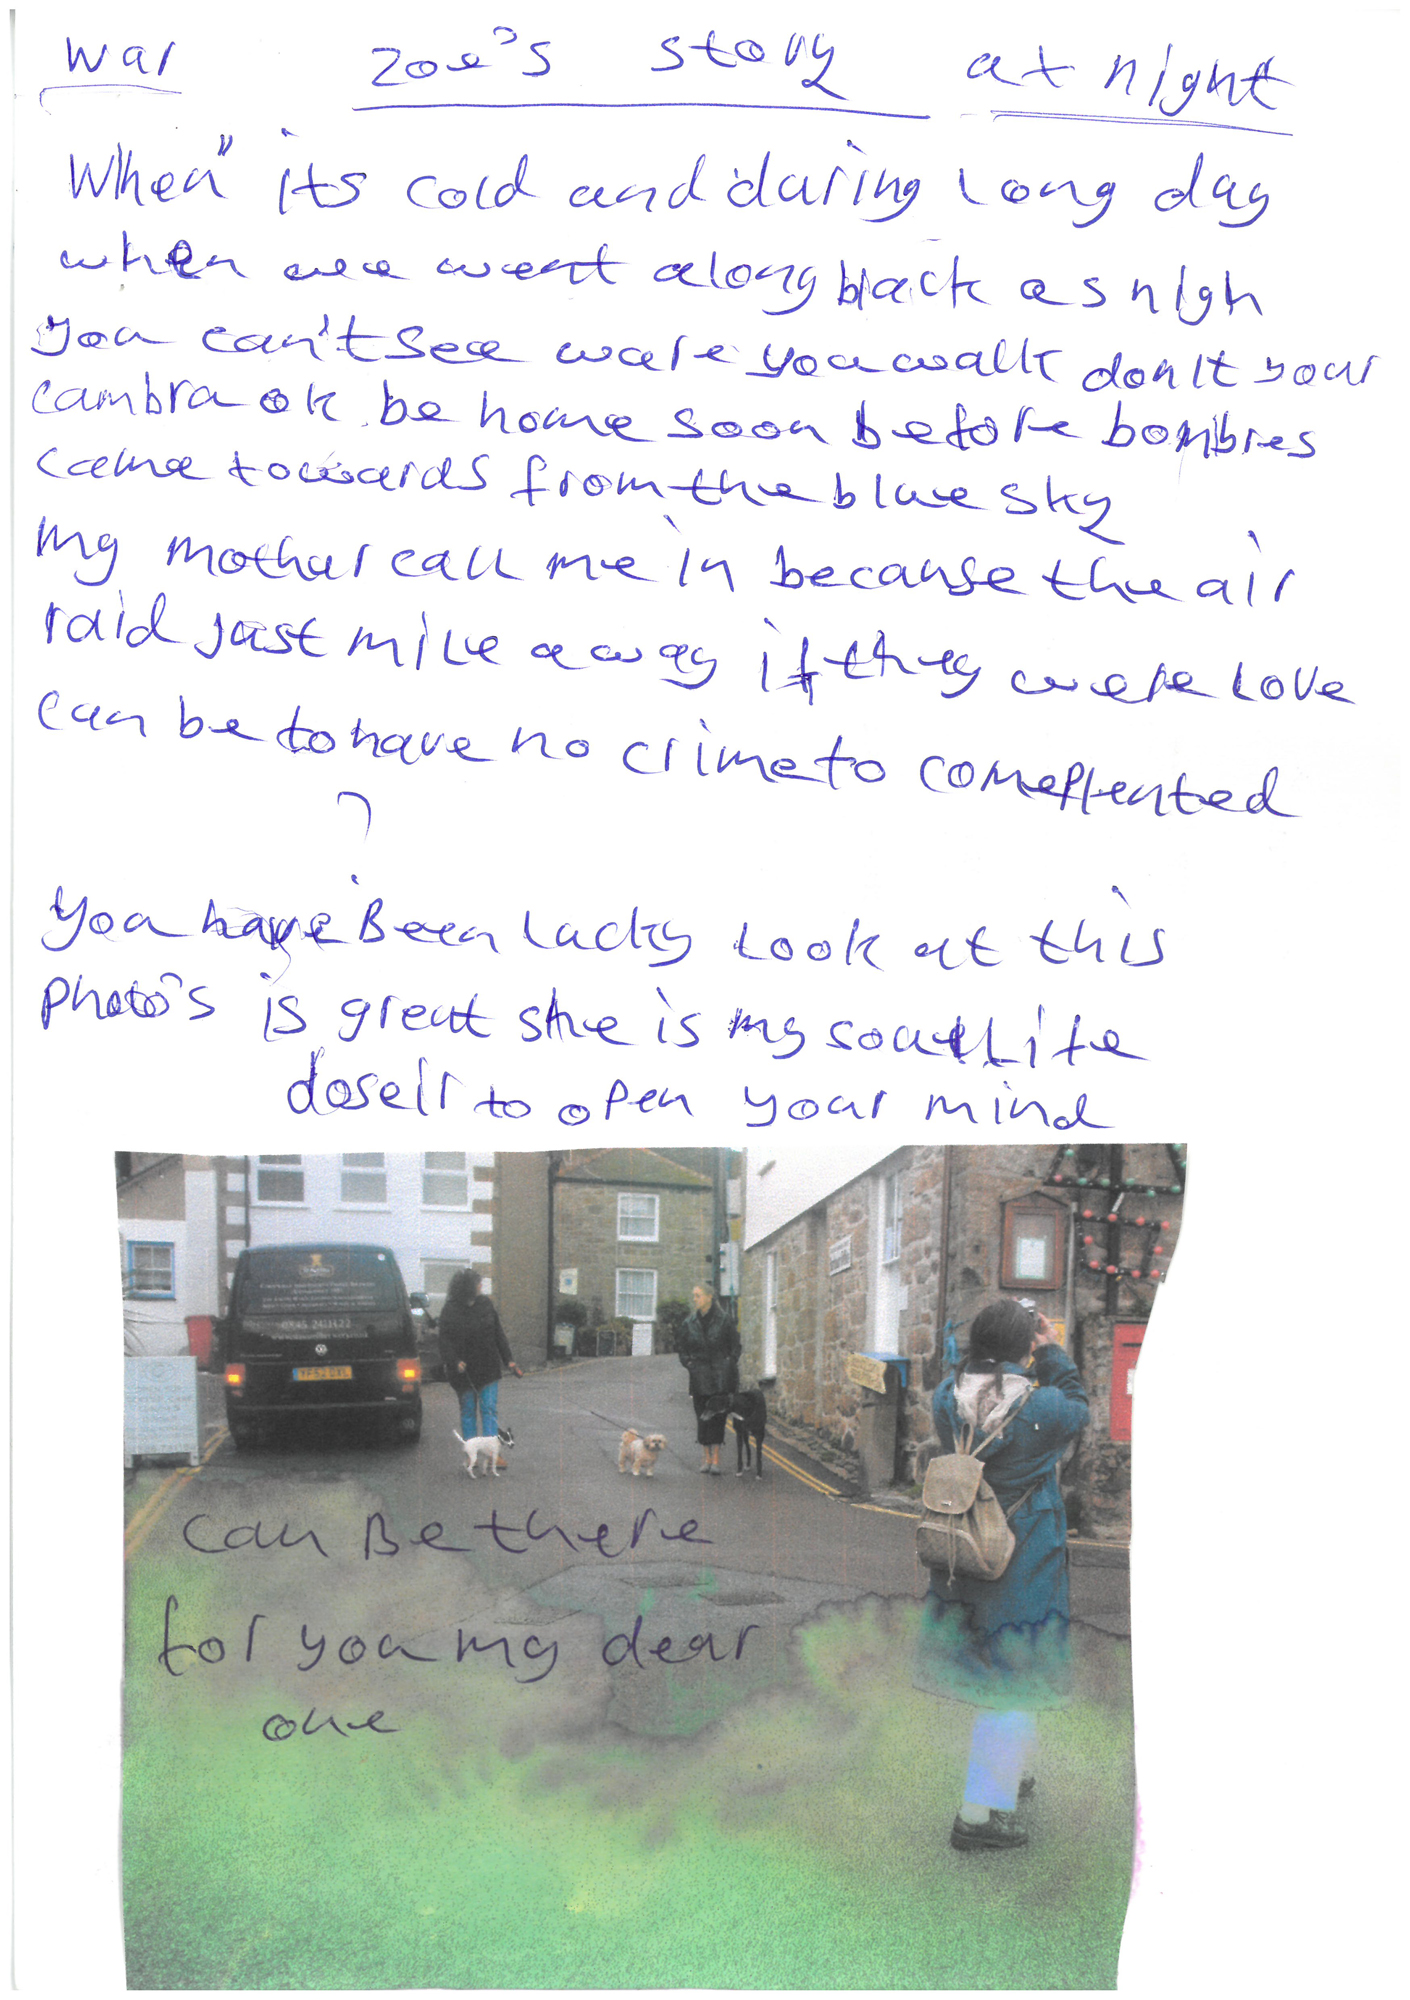 war zoe's story at night
When" its cold and during long day
when wee went along black as nigh
you can't see ware you walk don't your
cambra ok be home soon before bombres
came towards from the blue sky
my mother call me in because the air
raid just mile away if they were love
can be to have no crime to comeplented
?
you have Been lucky Look at this
photo's is great she is my soul Life
to open your mind
0845 2411422
YF52 OXL
can Be there
for you my dear
one